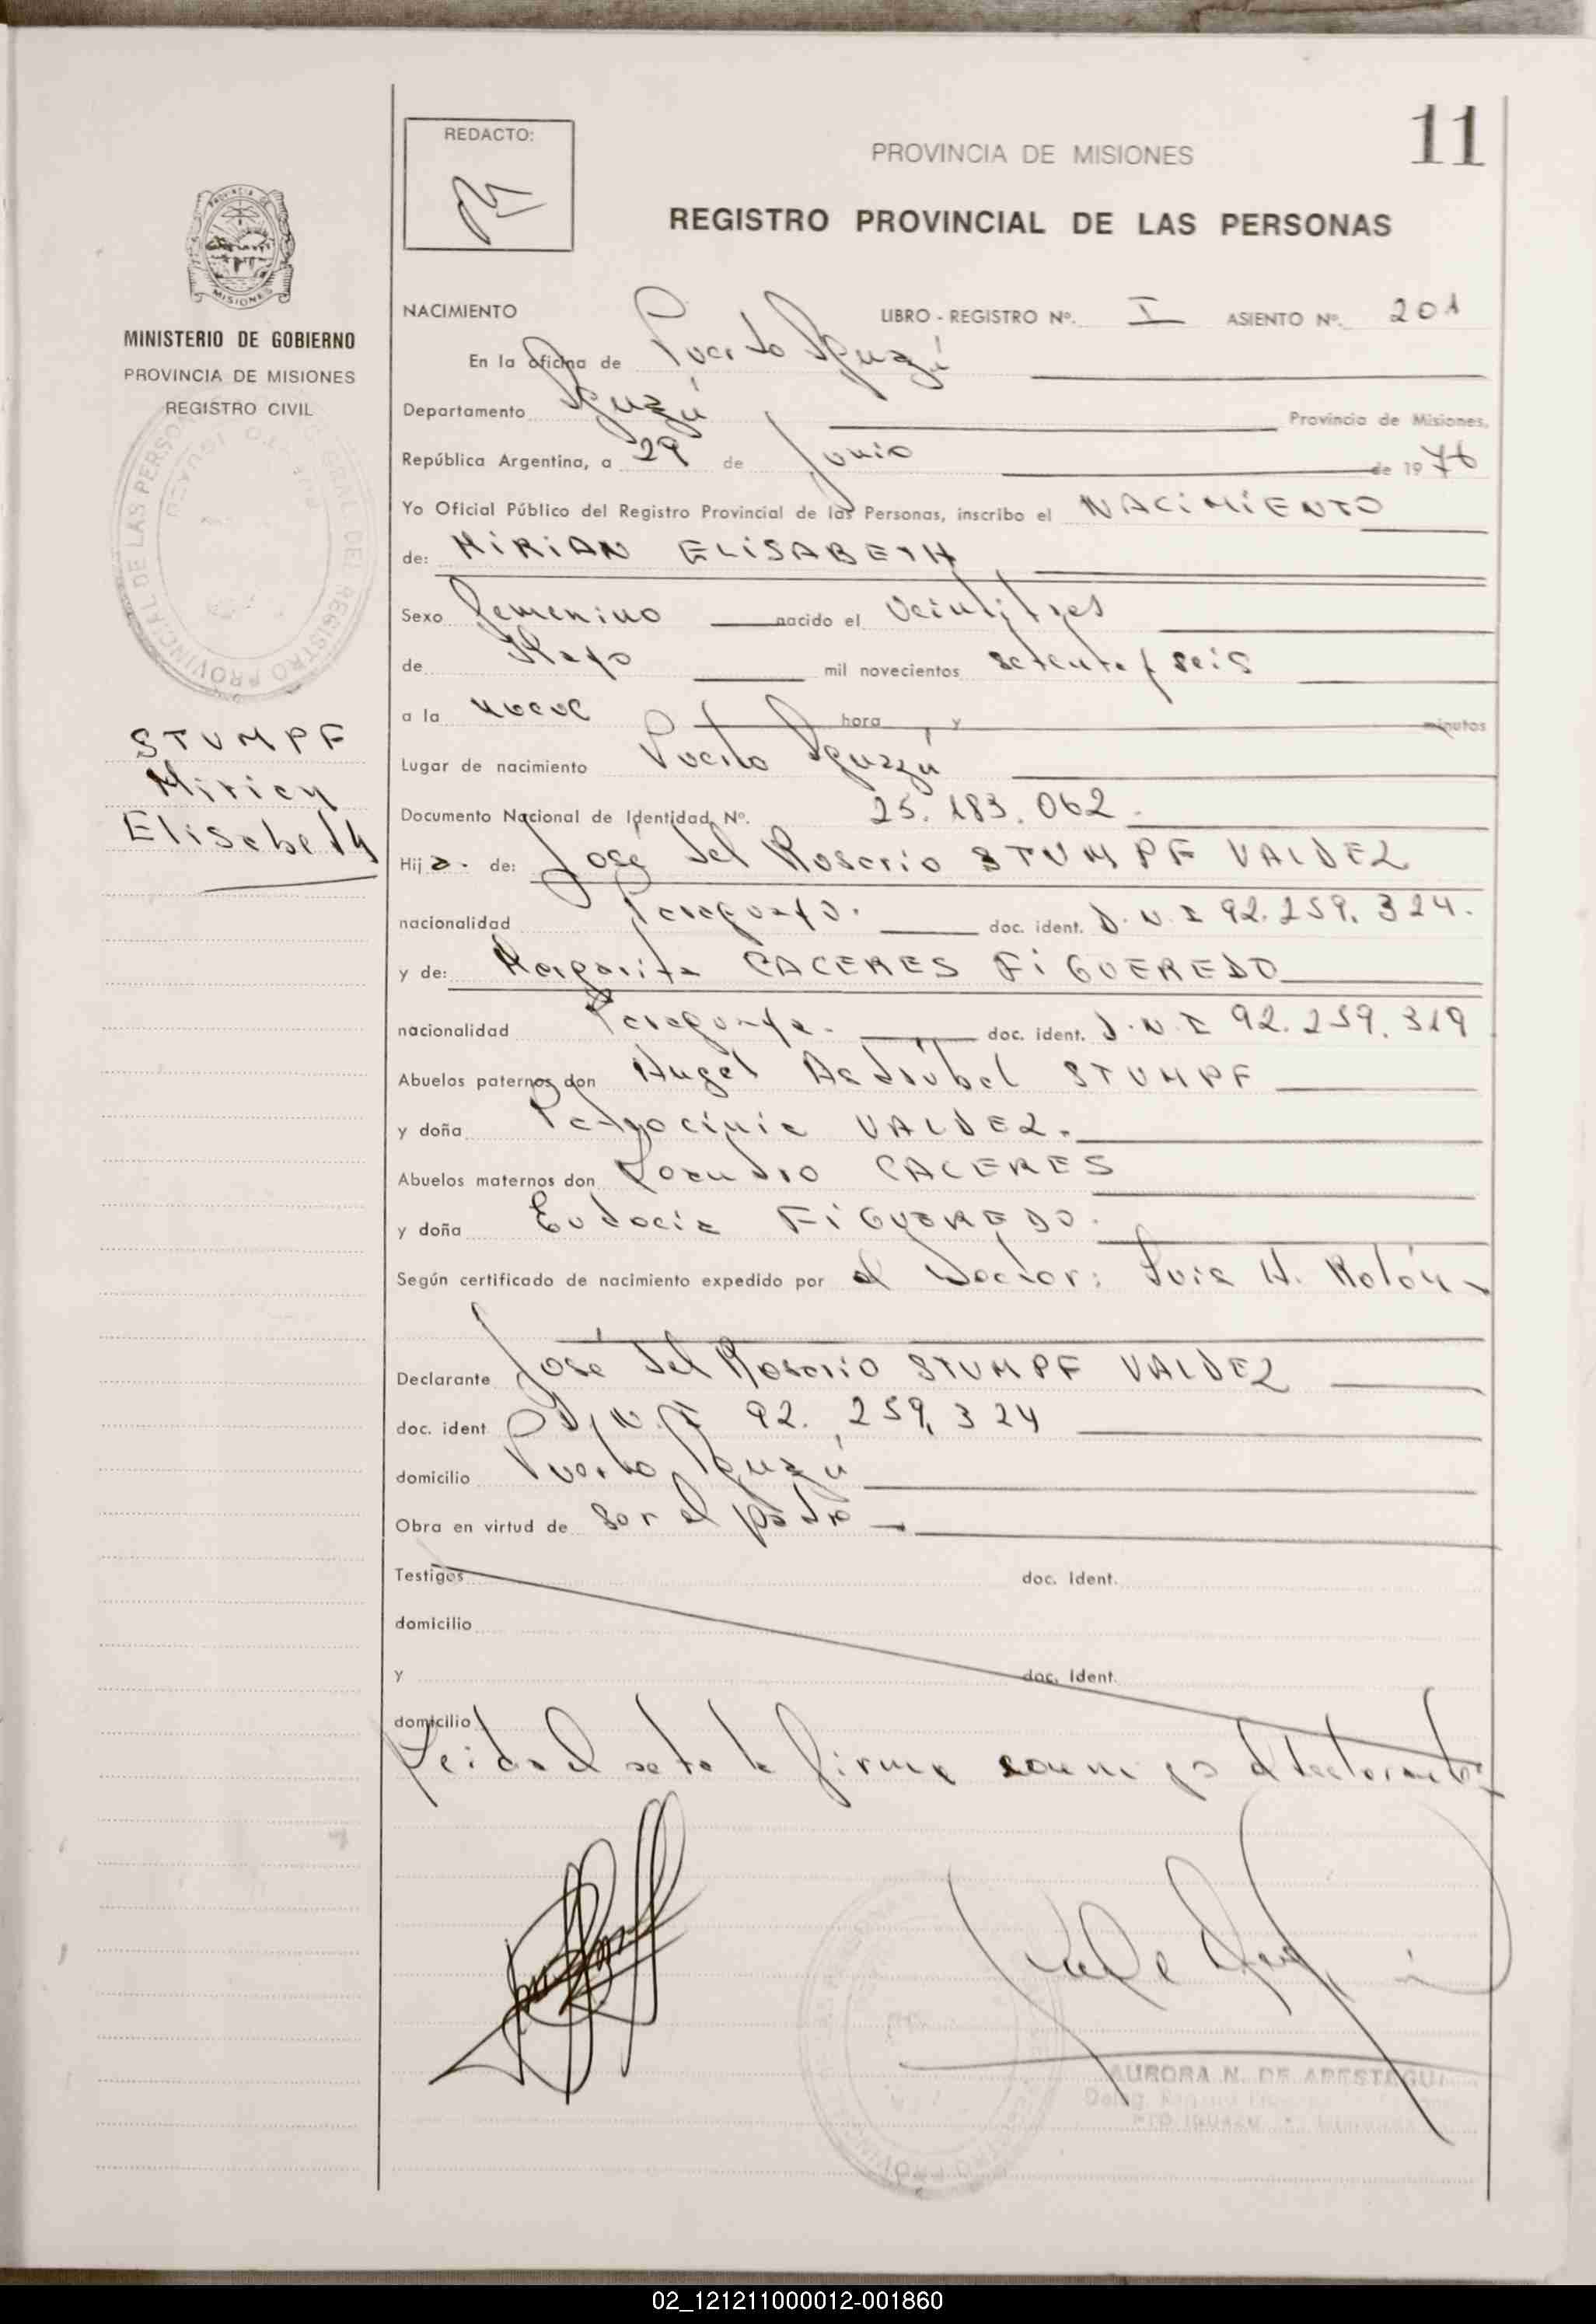 11
REDACTO:
PROVINCIA DE MISIONES
REGISTRO PROVINCIAL DE LAS PERSONAS
MISIONES
MINISTERIO DE GOBIERNO
PROVINCIA DE MISIONES
REGISTRO CIVIL
STUMPF
Mirian
Elisabeth
NACIMIENTO LIBRO - REGISTRO Nº. I ASIENTO Nº. 201
En la oficina de Puerto Iguazú
Departamento Iguazú Provincia de Misiones,
República Argentina, a 29 de Junio de 1976
Yo Oficial Público del Registro Provincial de las Personas, inscribo el NACIMIENTO
de: MIRIAN ELISABETH
Sexo femenino nacido el veintitres
de Mayo mil novecientos setenta y seis
a la nueve hora y minutos
Lugar de nacimiento Puerto Iguazú
Documento Nacional de Identidad Nº. 25.183.062.
Hija. de: José del Rosario STUMPF VALDEZ
nacionalidad Paraguayo. doc. ident. D.N.I 92.259.324.
y de: Margarita CACERES FIGUEREDO
nacionalidad Paraguaya. doc. ident. D.N.I 92.259.319
Abuelos paternos don Angel Asdrúbal STUMPF
y doña Patrocinia VALDEZ.
Abuelos maternos don CACERES
y doña Eudocia FIGUEREDO.
Según certificado de nacimiento expedido por el Doctor: Luis H. Rolón
Declarante José del Rosario STUMPF VALDEZ
doc. ident D.N.I 92.259.324
domicilio Puerto Iguazú
Obra en virtud de ser el padre
Testigos doc. Ident.
domicilio
y doc. Ident.
domicilio
Leida el acta la firma conmigo el declarante
AURORA N. DE ARESTEGUI
PTO IGUAZU
02_121211000012-001860